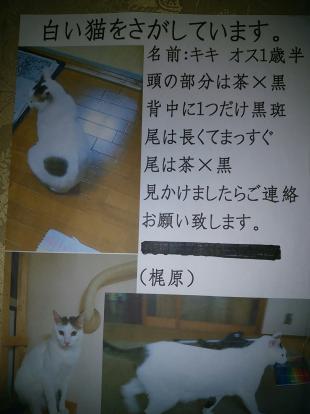 白い猫をさがしています。
名前:キキ オス1歳半
頭の部分は茶×黒
背中に1つだけ黒斑
尾は長くてまっすぐ
尾は茶×黒
見かけましたらご連絡
お願い致します。
(梶原)